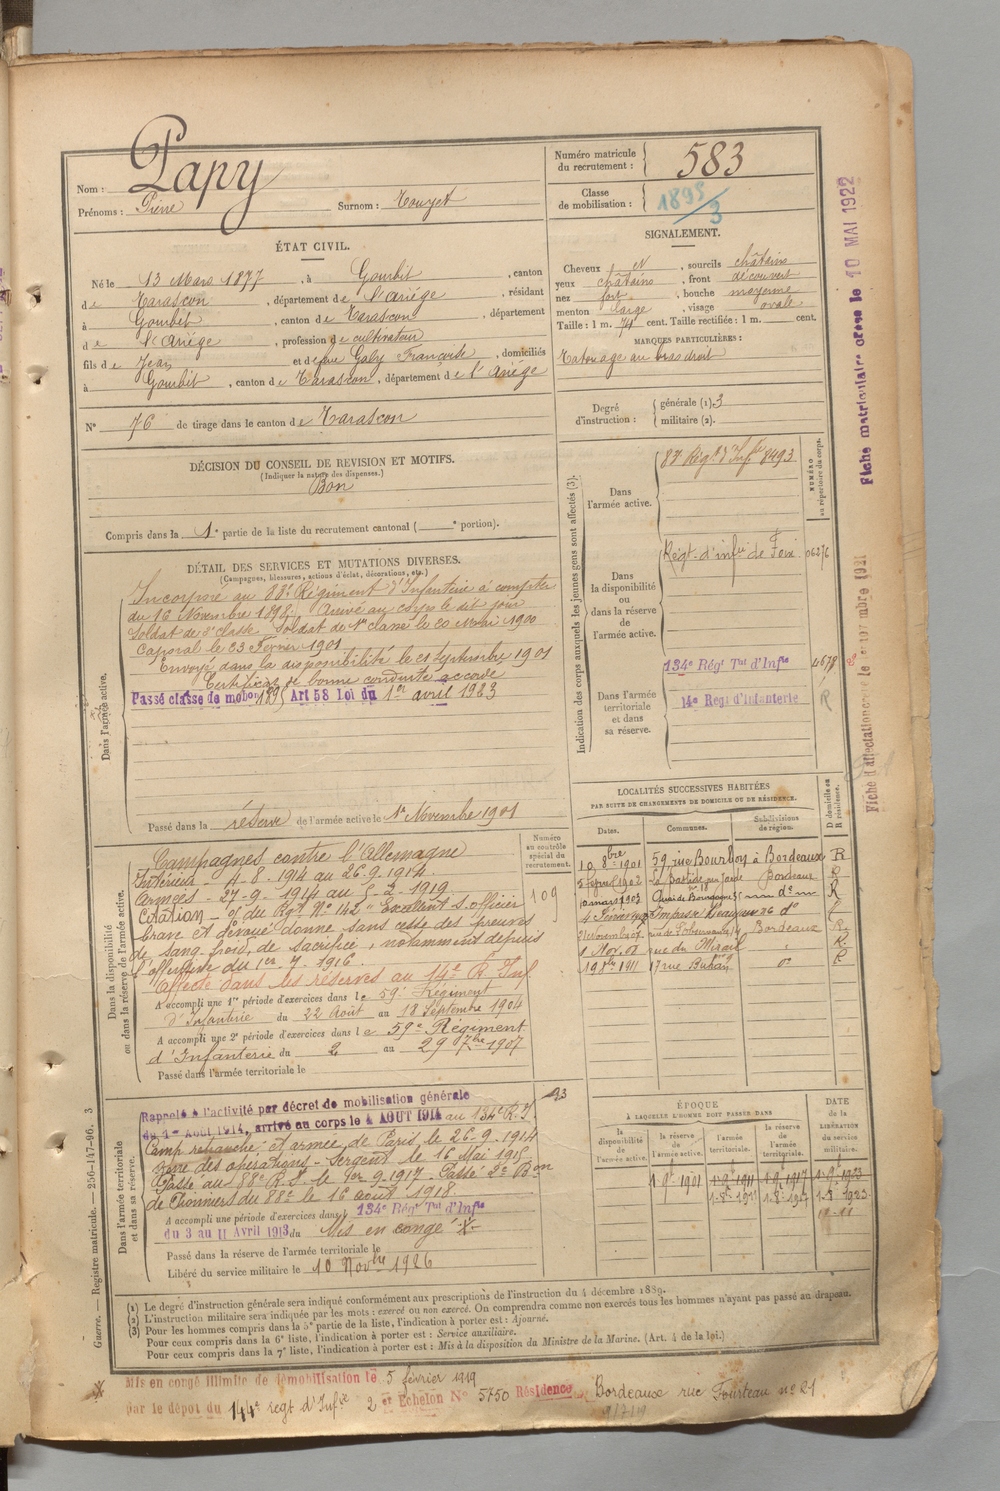 Nom : Papy
Prénoms : Pierre Surnom : Touyet
Numéro matricule du recrutement : 583
Classe de mobilisation : 1895/3
ÉTAT CIVIL.
Né le 13 Mars 1877, à Gourbit, canton
de Tarascon, département de l'Ariége, résidant
à Gourbit, canton de Tarascon, département
de l'Ariége, profession de cultivateur
fils de Jean et de feue Gaby Françoise, domiciliés
à Gourbit, canton de Tarascon, département de l'Ariége
N° 76 de tirage dans le canton de Tarascon
SIGNALEMENT.
Cheveux N, sourcils châtains
yeux châtains, front découvert
nez fort, bouche moyenne
menton large, visage ovale
Taille : 1 m. 74 cent. Taille rectifiée : 1 m. cent.
MARQUES PARTICULIÈRES :
Tatouage au bras droit
Degré d'instruction : générale (1). 3
militaire (2).
DÉCISION DU CONSEIL DE REVISION ET MOTIFS.
(Indiquer la nature des dispenses.)
Bon
Compris dans la 1e partie de la liste du recrutement cantonal ( e portion).
DÉTAIL DES SERVICES ET MUTATIONS DIVERSES.
(Campagnes, blessures, actions d'éclat, décorations, etc.)
Dans l'armée active.
Incorporé au 83e Régiment d'Infanterie à compter
du 16 Novembre 1898. Arrivé au corps le dit jour
Soldat de 2e classe. Soldat de 1re classe le 20 Mai 1900
Caporal le 23 Février 1901
Envoyé dans la disponibilité le 21 Septembre 1901
Certificat de bonne conduite accordé
Passé classe de mobon 189 Art 58 Loi du 1er avril 1923
Passé dans la réserve de l'armée active le 1er Novembre 1901
Numéro au contrôle spécial du recrutement.
109
Dans la disponibilité ou dans la réserve de l'armée active.
Campagnes contre l'Allemagne
Intérieur - 4-8-1914 au 26-9-1914
Armées - 27-9-1914 au 5-2-1919
Citation - O/ du Rgt N° 142 "Excellent S. officier
brave et dévoué donne sans cesse des preuves
de sang-froid, de sacrifice, notamment depuis
l'offensive du 1er-7-1916.
Affecté dans les réserves au 14e R Inf
A accompli une 1re période d'exercices dans le 59e Régiment
d'Infanterie du 22 Août au 18 Septembre 1904
A accompli une 2e période d'exercices dans le 59e Régiment
d'Infanterie du 2 au 29 7bre 1907
Passé dans l'armée territoriale le
Dans l'armée territoriale et dans sa réserve.
Rappelé à l'activité par décret de mobilisation générale
du 1er AOUT 1914, arrivé au corps le 4 AOUT 1914 au 134e R.T.
Camp retranché et armée de Paris le 26-9-1914
zone des opérations - Sergent le 16 Mai 1915
Passé au 88e R.I. le 1er-9-1917 - Passé 2e Bon
de Pionniers du 88e le 16 août 1918
A accompli une période d'exercices dans le 134e Régt Tal d'Infie
du 3 au 11 Avril 1913 du Mis en congé
Passé dans la réserve de l'armée territoriale le
Libéré du service militaire le 10 Novbre 1926
Indication des corps auxquels les jeunes gens sont affectés (3).
NUMÉRO au répertoire du corps.
Dans l'armée active.
83 Régt d'Infie 8493
Dans la disponibilité ou dans la réserve de l'armée active.
Régt d'infie de Foix 06276
Dans l'armée territoriale et dans sa réserve.
134e Régt Tal d'Infie 4678
14e Régt d'Infanterie R
LOCALITÉS SUCCESSIVES HABITÉES
PAR SUITE DE CHANGEMENTS DE DOMICILE OU DE RÉSIDENCE.
Dates. Communes. Subdivisions de région. D domicile ou R résidence.
10 8bre 1901 59, rue Bourbon à Bordeaux R
1902 La Bastide Bordeaux
10 mars 1903 Quai de Bourgogne do R
4 Impasse do
Bordeaux R
1 Nov. rue du Mirail R
1911 17 rue Buhan do R
ÉPOQUE
À LAQUELLE L'HOMME DOIT PASSER DANS
la disponibilité de l'armée active. la réserve de l'armée active. l'armée territoriale. la réserve de l'armée territoriale.
DATE de la LIBÉRATION du service militaire.
1-9bre 1901 1-9-1911 1-9-1917 1-9-1923
1-8-1911 1-8-1917 1-8-1923
(1) Le degré d'instruction générale sera indiqué conformément aux prescriptions de l'instruction du 4 décembre 1889.
(2) L'instruction militaire sera indiquée par les mots : exercé ou non exercé. On comprendra comme non exercés tous les hommes n'ayant pas passé au drapeau.
(3) Pour les hommes compris dans la 5e partie de la liste, l'indication à porter est : Ajourné.
Pour ceux compris dans la 6e liste, l'indication à porter est : Service auxiliaire.
Pour ceux compris dans la 7e liste, l'indication à porter est : Mis à la disposition du Ministre de la Marine. (Art. 4 de la loi.)
Mis en congé illimité de démobilisation le 5 février 1919
par le dépot du 144e regt d'Infie 2 er Echelon N° 5750 Résidence Bordeaux rue Fourteau n° 21
Guerre. — Registre matricule. — 256-147-96. 3
Fiche matriculaire crée le 10 MAI 1922